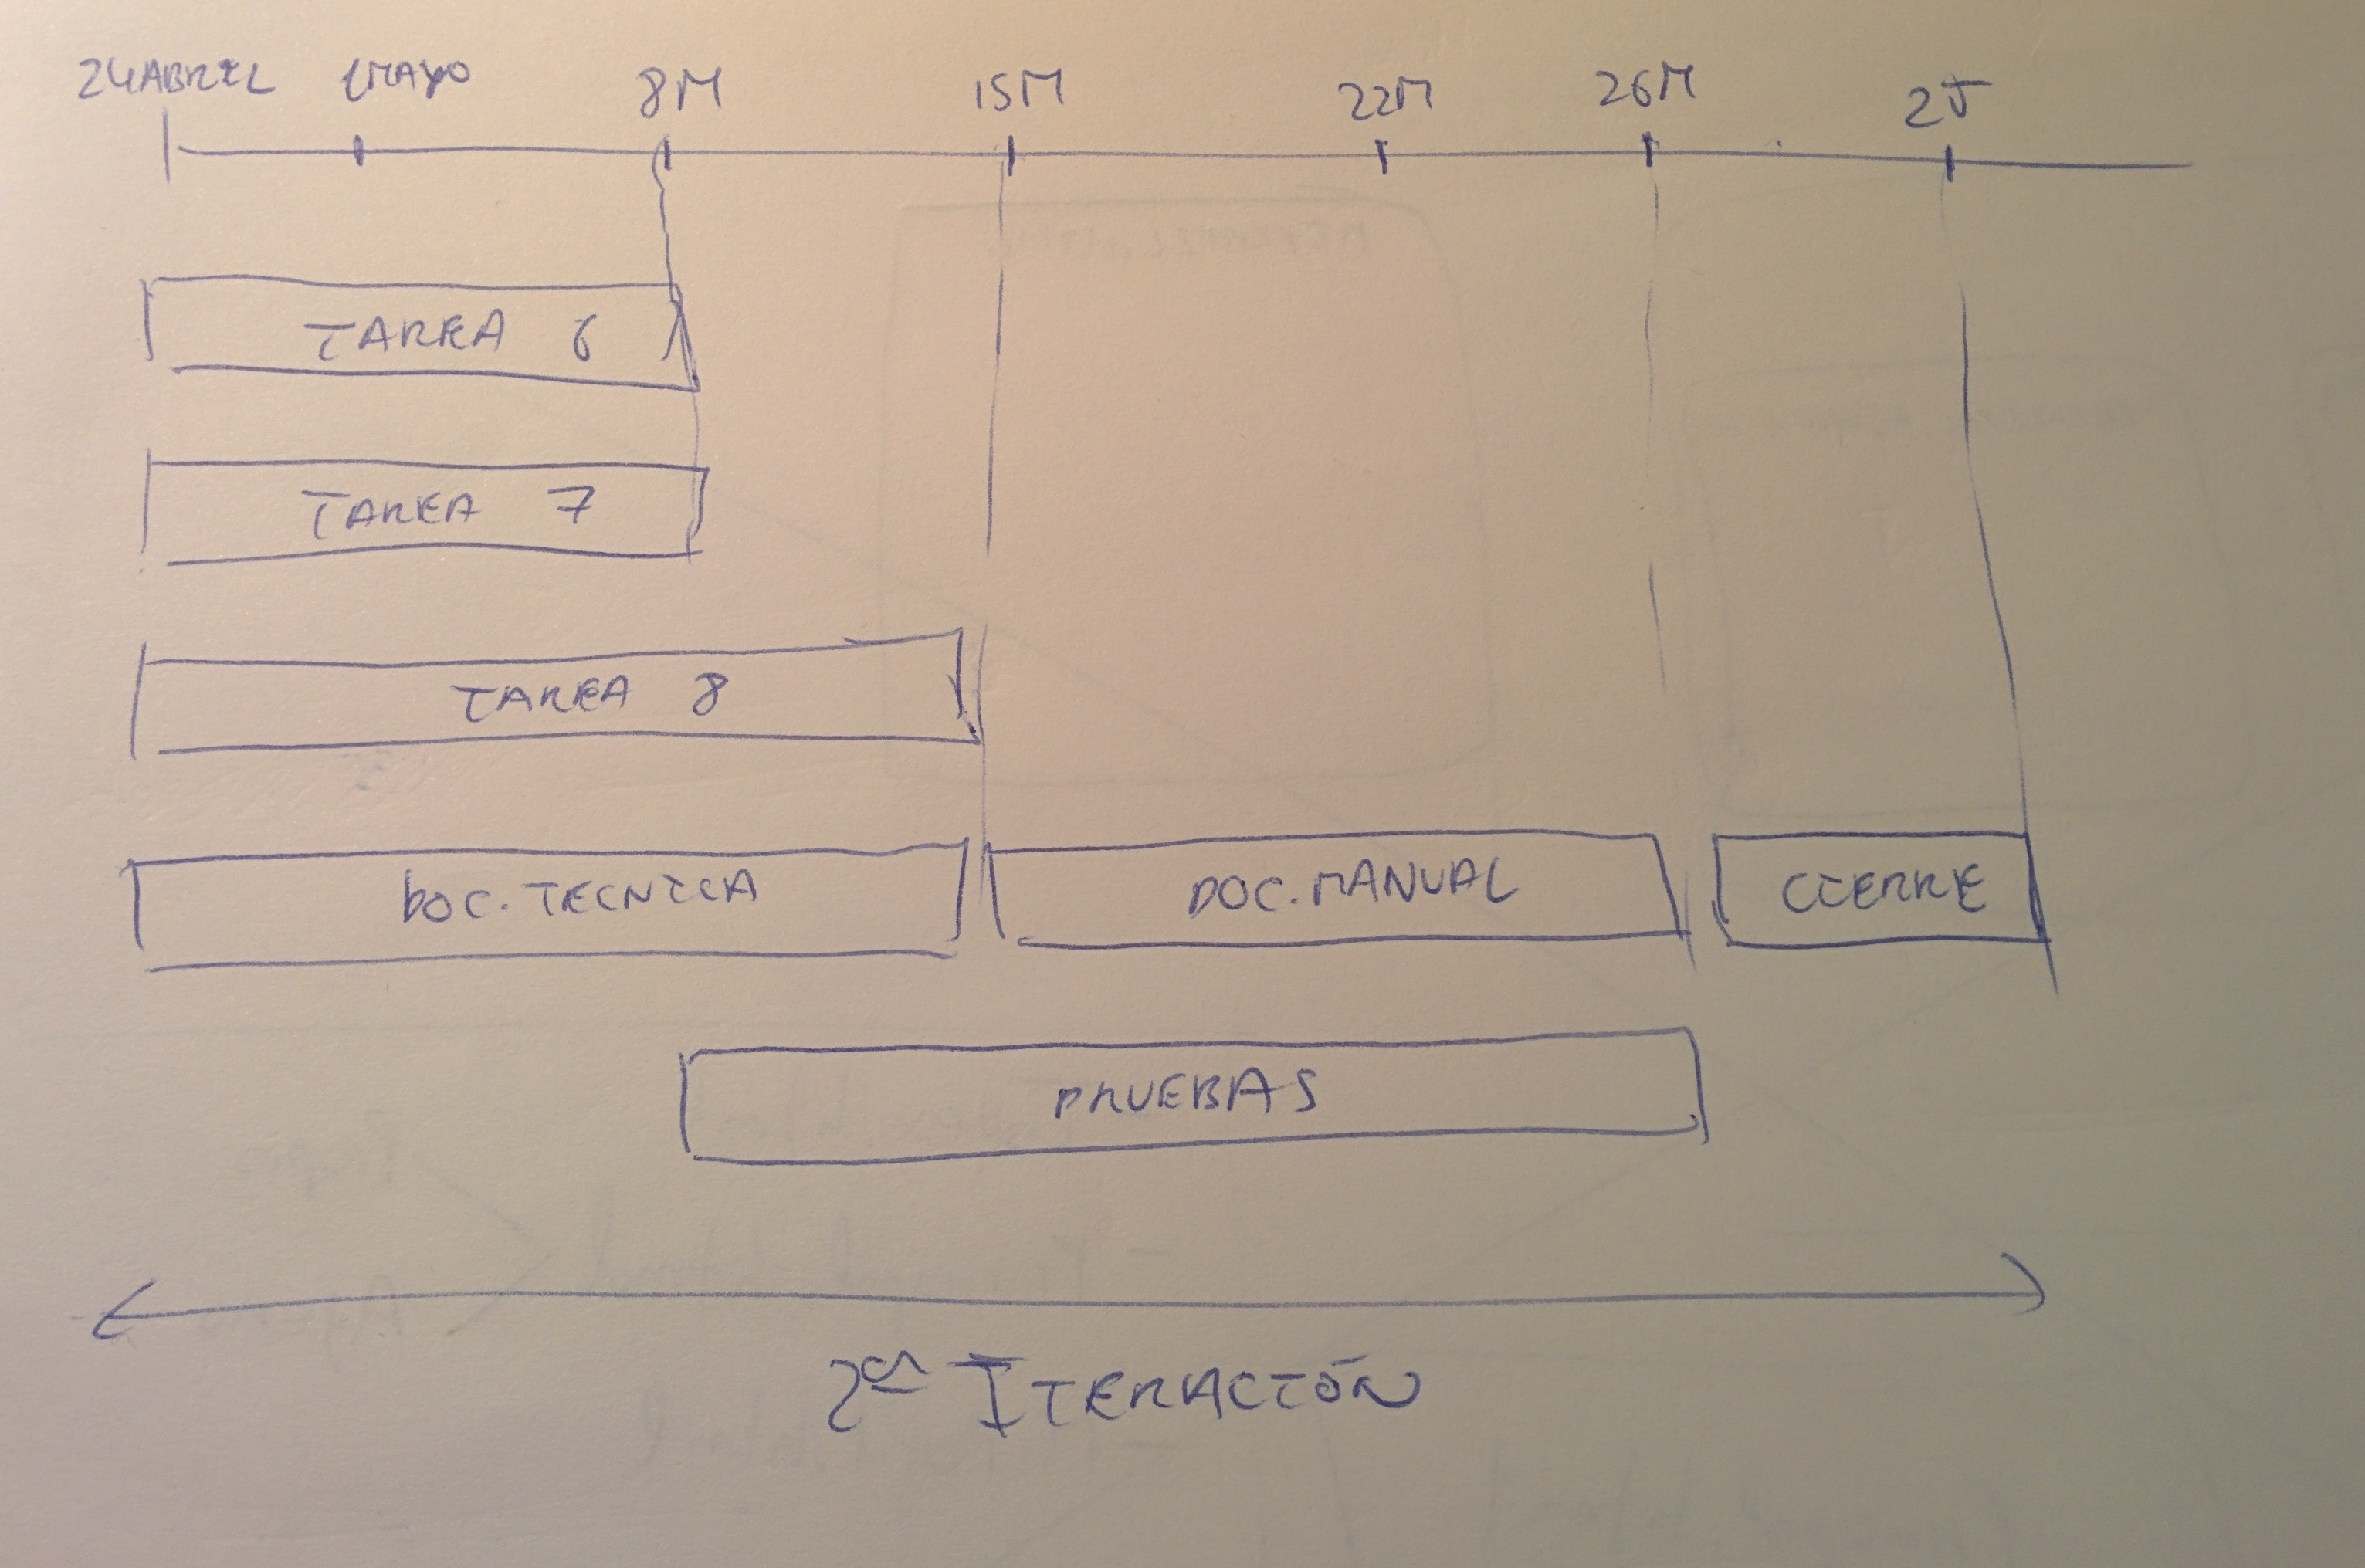 24 ABRIL 1 MAYO 8M 15M 22M 26M 2J
TAREA 6
TAREA 7
TAREA 8
DOC. TECNICA DOC. MANUAL CIERRE
PRUEBAS
2ª ITERACIÓN